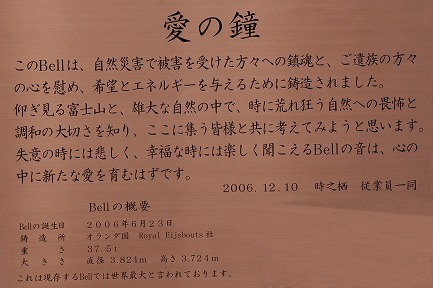 愛の鐘
このBellは、自然災害で被害を受けた方々への鎮魂と、ご遺族の方々
の心を慰め、希望とエネルギーを与えるために鋳造されました。
仰ぎ見る富士山と、雄大な自然の中で、時に荒れ狂う自然への畏怖と
調和の大切さを知り、ここに集う皆様と共に考えてみようと思います。
失意の時には悲しく、幸福な時には楽しく聞こえるBellの音は、心の
中に新たな愛を育むはずです。
2006.12.10 時之栖 従業員一同
Bellの概要
Bellの誕生日 2006年6月23日
鋳造所 オランダ国 Royal Eijsbouts社
重さ 37.5t
大きさ 直径 3.824m 高さ 3.724m
これは現存するBellでは世界最大と言われております。